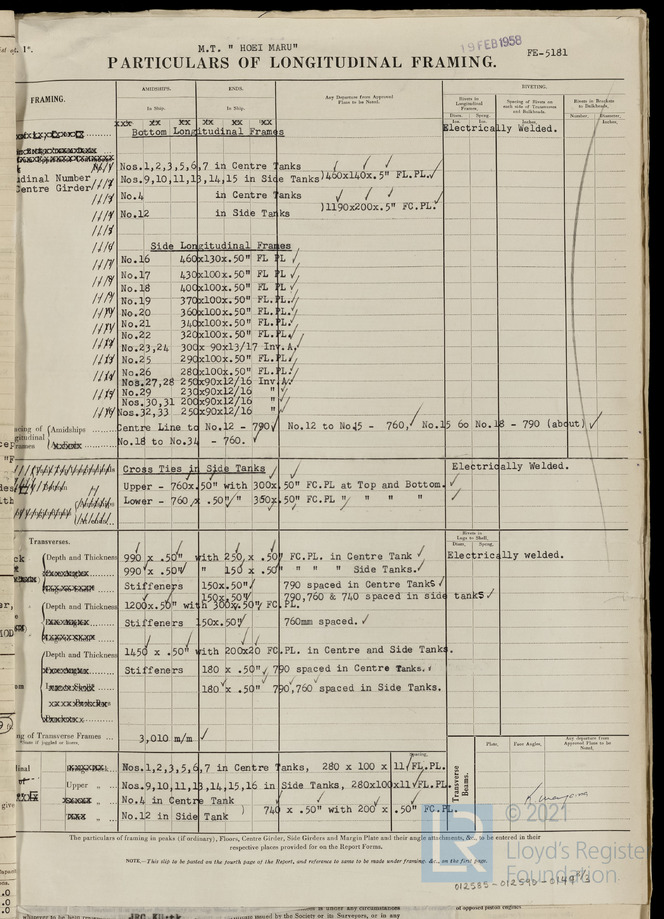 M.T. " HOEI MARU"
19 FEB 1958
FE-5181
PARTICULARS OF LONGITUDINAL FRAMING.
FRAMING.
AMIDSHIPS.
ENDS.
In Ship.
In Ship.
Any Departure from Approved Plans to be Noted.
RIVETING.
Rivets in Longitudinal Frames.
Spacing of Rivets on each side of Transverses and Bulkheads.
Rivets in Brackets to Bulkheads.
Diam. Spcng.
Ins. Ins.
Inches.
Number.
Diameter, Inches.
Bottom Longitudinal Frames
Electrically Welded.
Nos.1,2,3,5,6,7 in Centre Tanks
Nos.9,10,11,13,14,15 in Side Tanks)460x140x.5" FL.PL.
dinal Number
Centre Girder
No.4 in Centre Tanks
)1190x200x.5" FC.PL.
No.12 in Side Tanks
Side Longitudinal Frames
No.16 460x130x.50" FL PL
No.17 430x100x.50" FL PL
No.18 400x100x.50" FL PL
No.19 370x100x.50" FL.PL.
No.20 360x100x.50" FL.PL.
No.21 340x100x.50" FL.PL.
No.22 320x100x.50" FL.PL.
No.23,24 300x 90x13/17 Inv.A.
No.25 290x100x.50" FL.PL.
No.26 280x100x.50" FL.PL.
Nos.27,28 250x90x12/16 Inv.A.
No.29 230x90x12/16 "
Nos.30,31 200x90x12/16 "
Nos.32,33 250x90x12/16 "
acing of
gitudinal
rames
Amidships
Centre Line to No.12 - 790 No.12 to No.15 - 760, No.15 6o No.18 - 790 (about)
No.18 to No.34 - 760.
Cross Ties in Side Tanks
Electrically Welded.
Upper - 760x.50" with 300x.50" FC.PL at Top and Bottom.
Lower - 760 x .50" " 350x.50" FC.PL " " " "
Rivets in Lugs to Shell.
Diam. Spcng.
Transverses.
Depth and Thickness 990 x .50" with 250 x .50" FC.PL. in Centre Tank
Electrically welded.
990 x .50" " 150 x .50" " " " " Side Tanks.
Stiffeners 150x.50" 790 spaced in Centre Tanks
150x.50" 790,760 & 740 spaced in side tanks
Depth and Thickness 1200x.50" with 300x.50" FC.PL.
Stiffeners 150x.50" 760mm spaced.
Depth and Thickness 1450 x .50" with 200x20 FC.PL. in Centre and Side Tanks.
Stiffeners 180 x .50" 790 spaced in Centre Tanks.
180 x .50" 790,760 spaced in Side Tanks.
ng of Transverse Frames ... 3,010 m/m
State if joggled or liners.
Plate.
Face Angles.
Any departure from Approved Plans to be Noted.
Transverse Beams.
Spacing.
dinal
Nos.1,2,3,5,6,7 in Centre Tanks, 280 x 100 x 11 FL.PL.
Upper " ..
Nos.9,10,11,13,14,15,16 in Side Tanks, 280x100x11 FL.PL.
No.4 in Centre Tank
) 740 x .50" with 200 x .50" FC.PL.
No.12 in Side Tank
The particulars of framing in peaks (if ordinary), Floors, Centre Girder, Side Girders and Margin Plate and their angle attachments, &c., to be entered in their
respective places provided for on the Report Forms.
NOTE.—This slip to be pasted on the fourth page of the Report, and reference to same to be made under framing, &c., on the first page.
© 2021
LR
Lloyd's Register
Foundation
012585-012590-0149